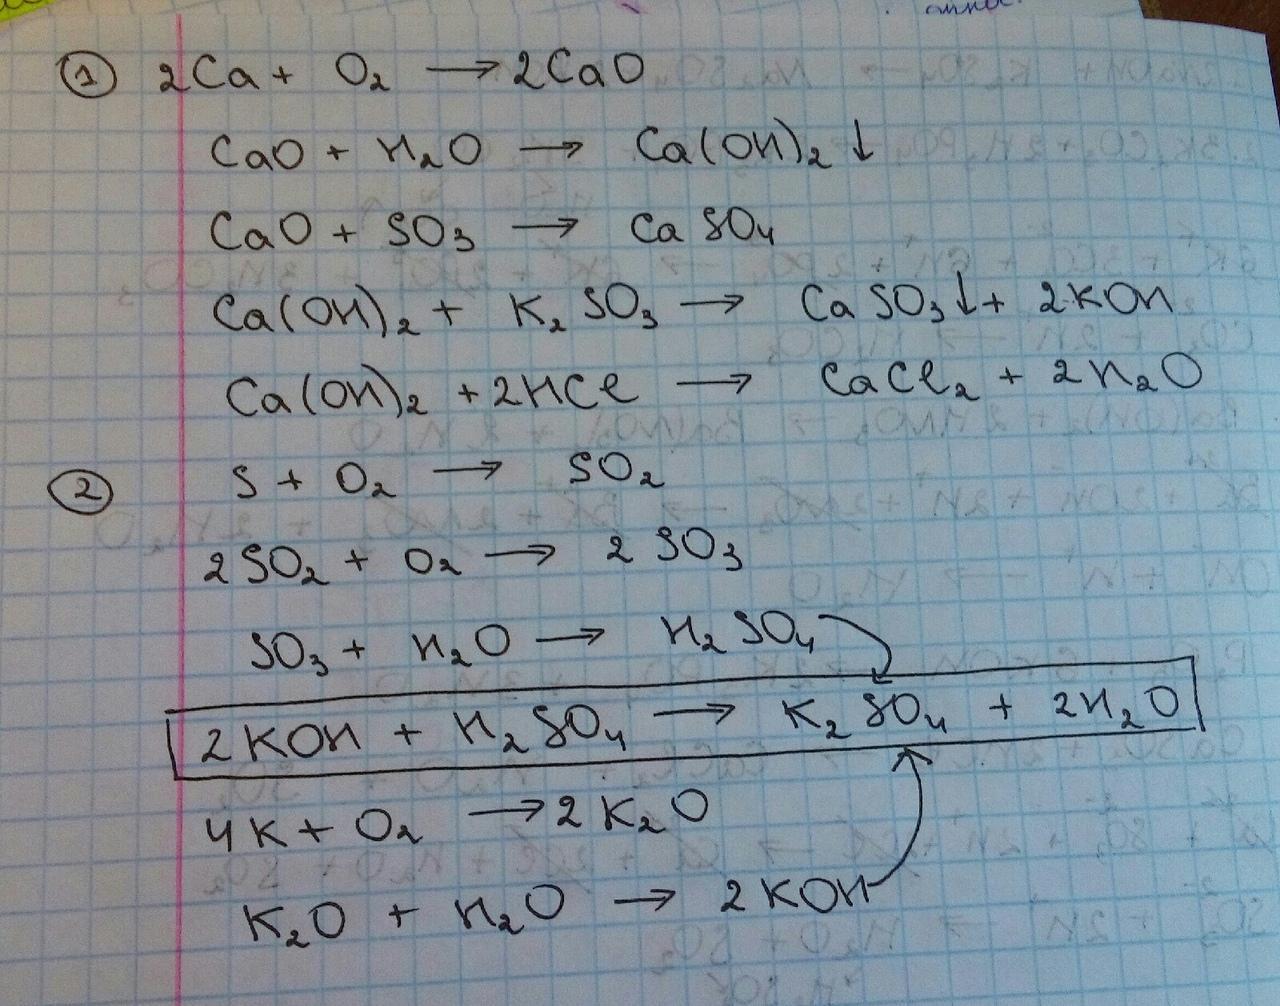 ① 2Ca + O₂ → 2CaO
CaO + H₂O → Ca(OH)₂↓
CaO + SO₃ → CaSO₄
Ca(OH)₂ + K₂SO₃ → CaSO₃↓ + 2KOH
Ca(OH)₂ + 2HCl → CaCl₂ + 2H₂O
② S + O₂ → SO₂
2SO₂ + O₂ → 2SO₃
SO₃ + H₂O → H₂SO₄
2KOH + H₂SO₄ → K₂SO₄ + 2H₂O
4K + O₂ → 2K₂O
K₂O + H₂O → 2KOH